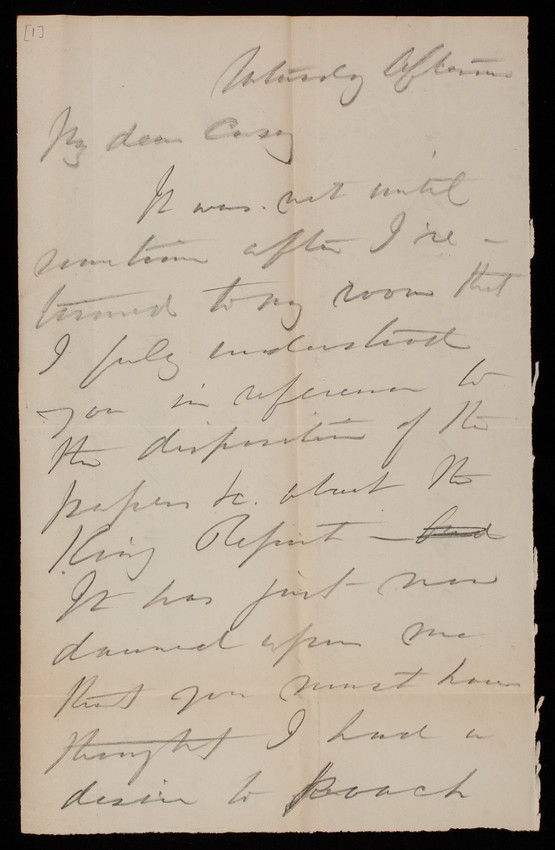 [1]
Saturday Afternoon
My dear Casey
It was not until
sometime after I re-
turned to my room that
I fully understood
you in reference to
the disposition of the
papers &c. about the
King Report — 
It has just now
dawned upon me
that you must have
thought I had a
desire to poach